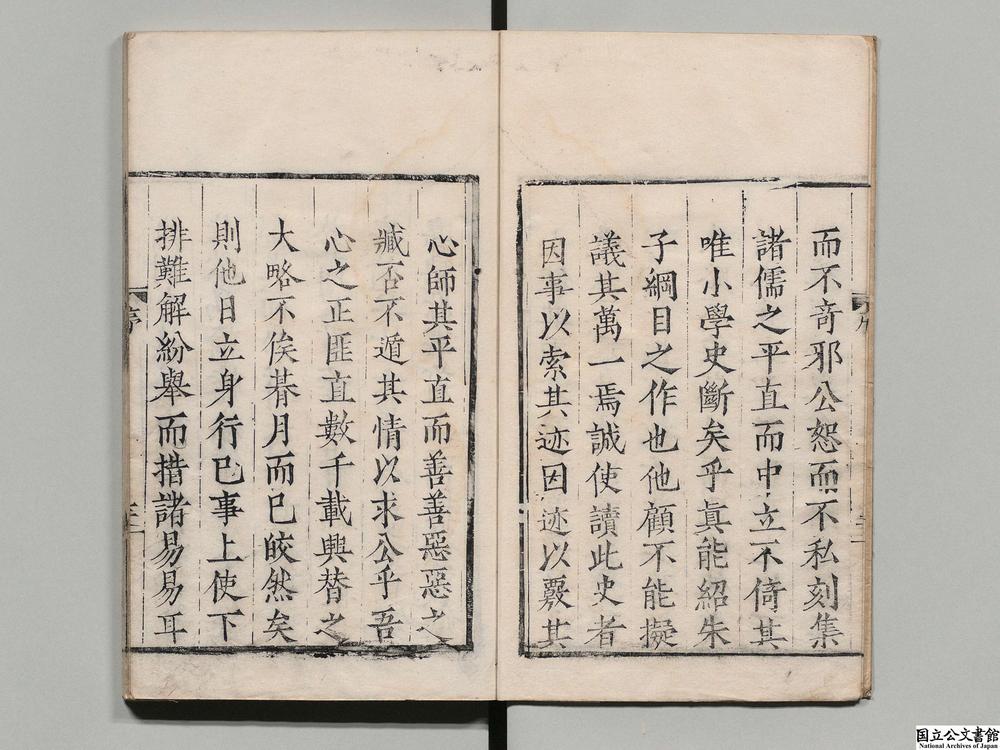 而不奇邪公恕而不私刻集
諸儒之平直而中立不倚其
唯小學史斷矣乎眞能紹朱
子綱目之作也他顧不能擬
議其萬一焉誠使讀此史者
因事以索其迹因迹以覈其
心師其平直而善善惡惡之
臧否不遁其情以求公乎吾
心之正匪直數千載興替之
大略不俟朞月而已皎然矣
則他日立身行已事上使下
排難解紛舉而措諸易易耳
序
国立公文書館
National Archives of Japan